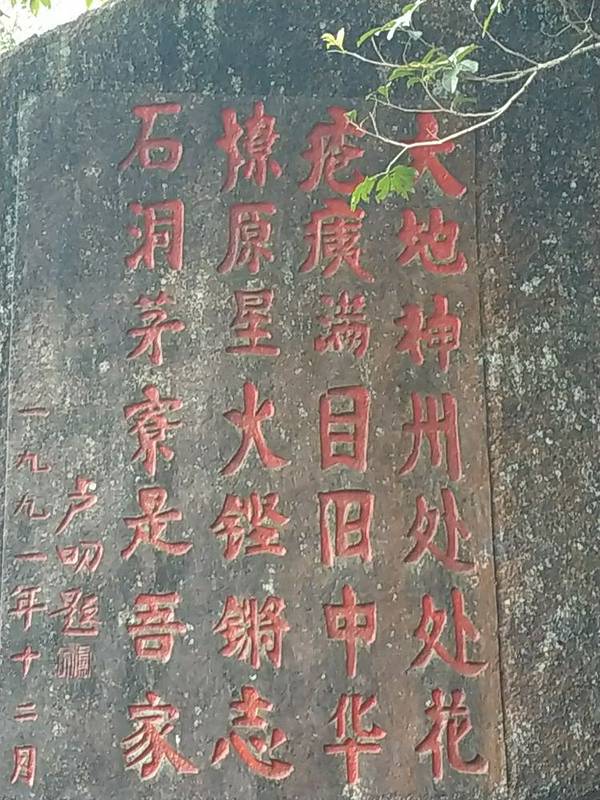 大地神州处处花
疮痍满目旧中华
撩原星火铿锵志
石洞茅寮是吾家
卢叨题
一九九一年十二月